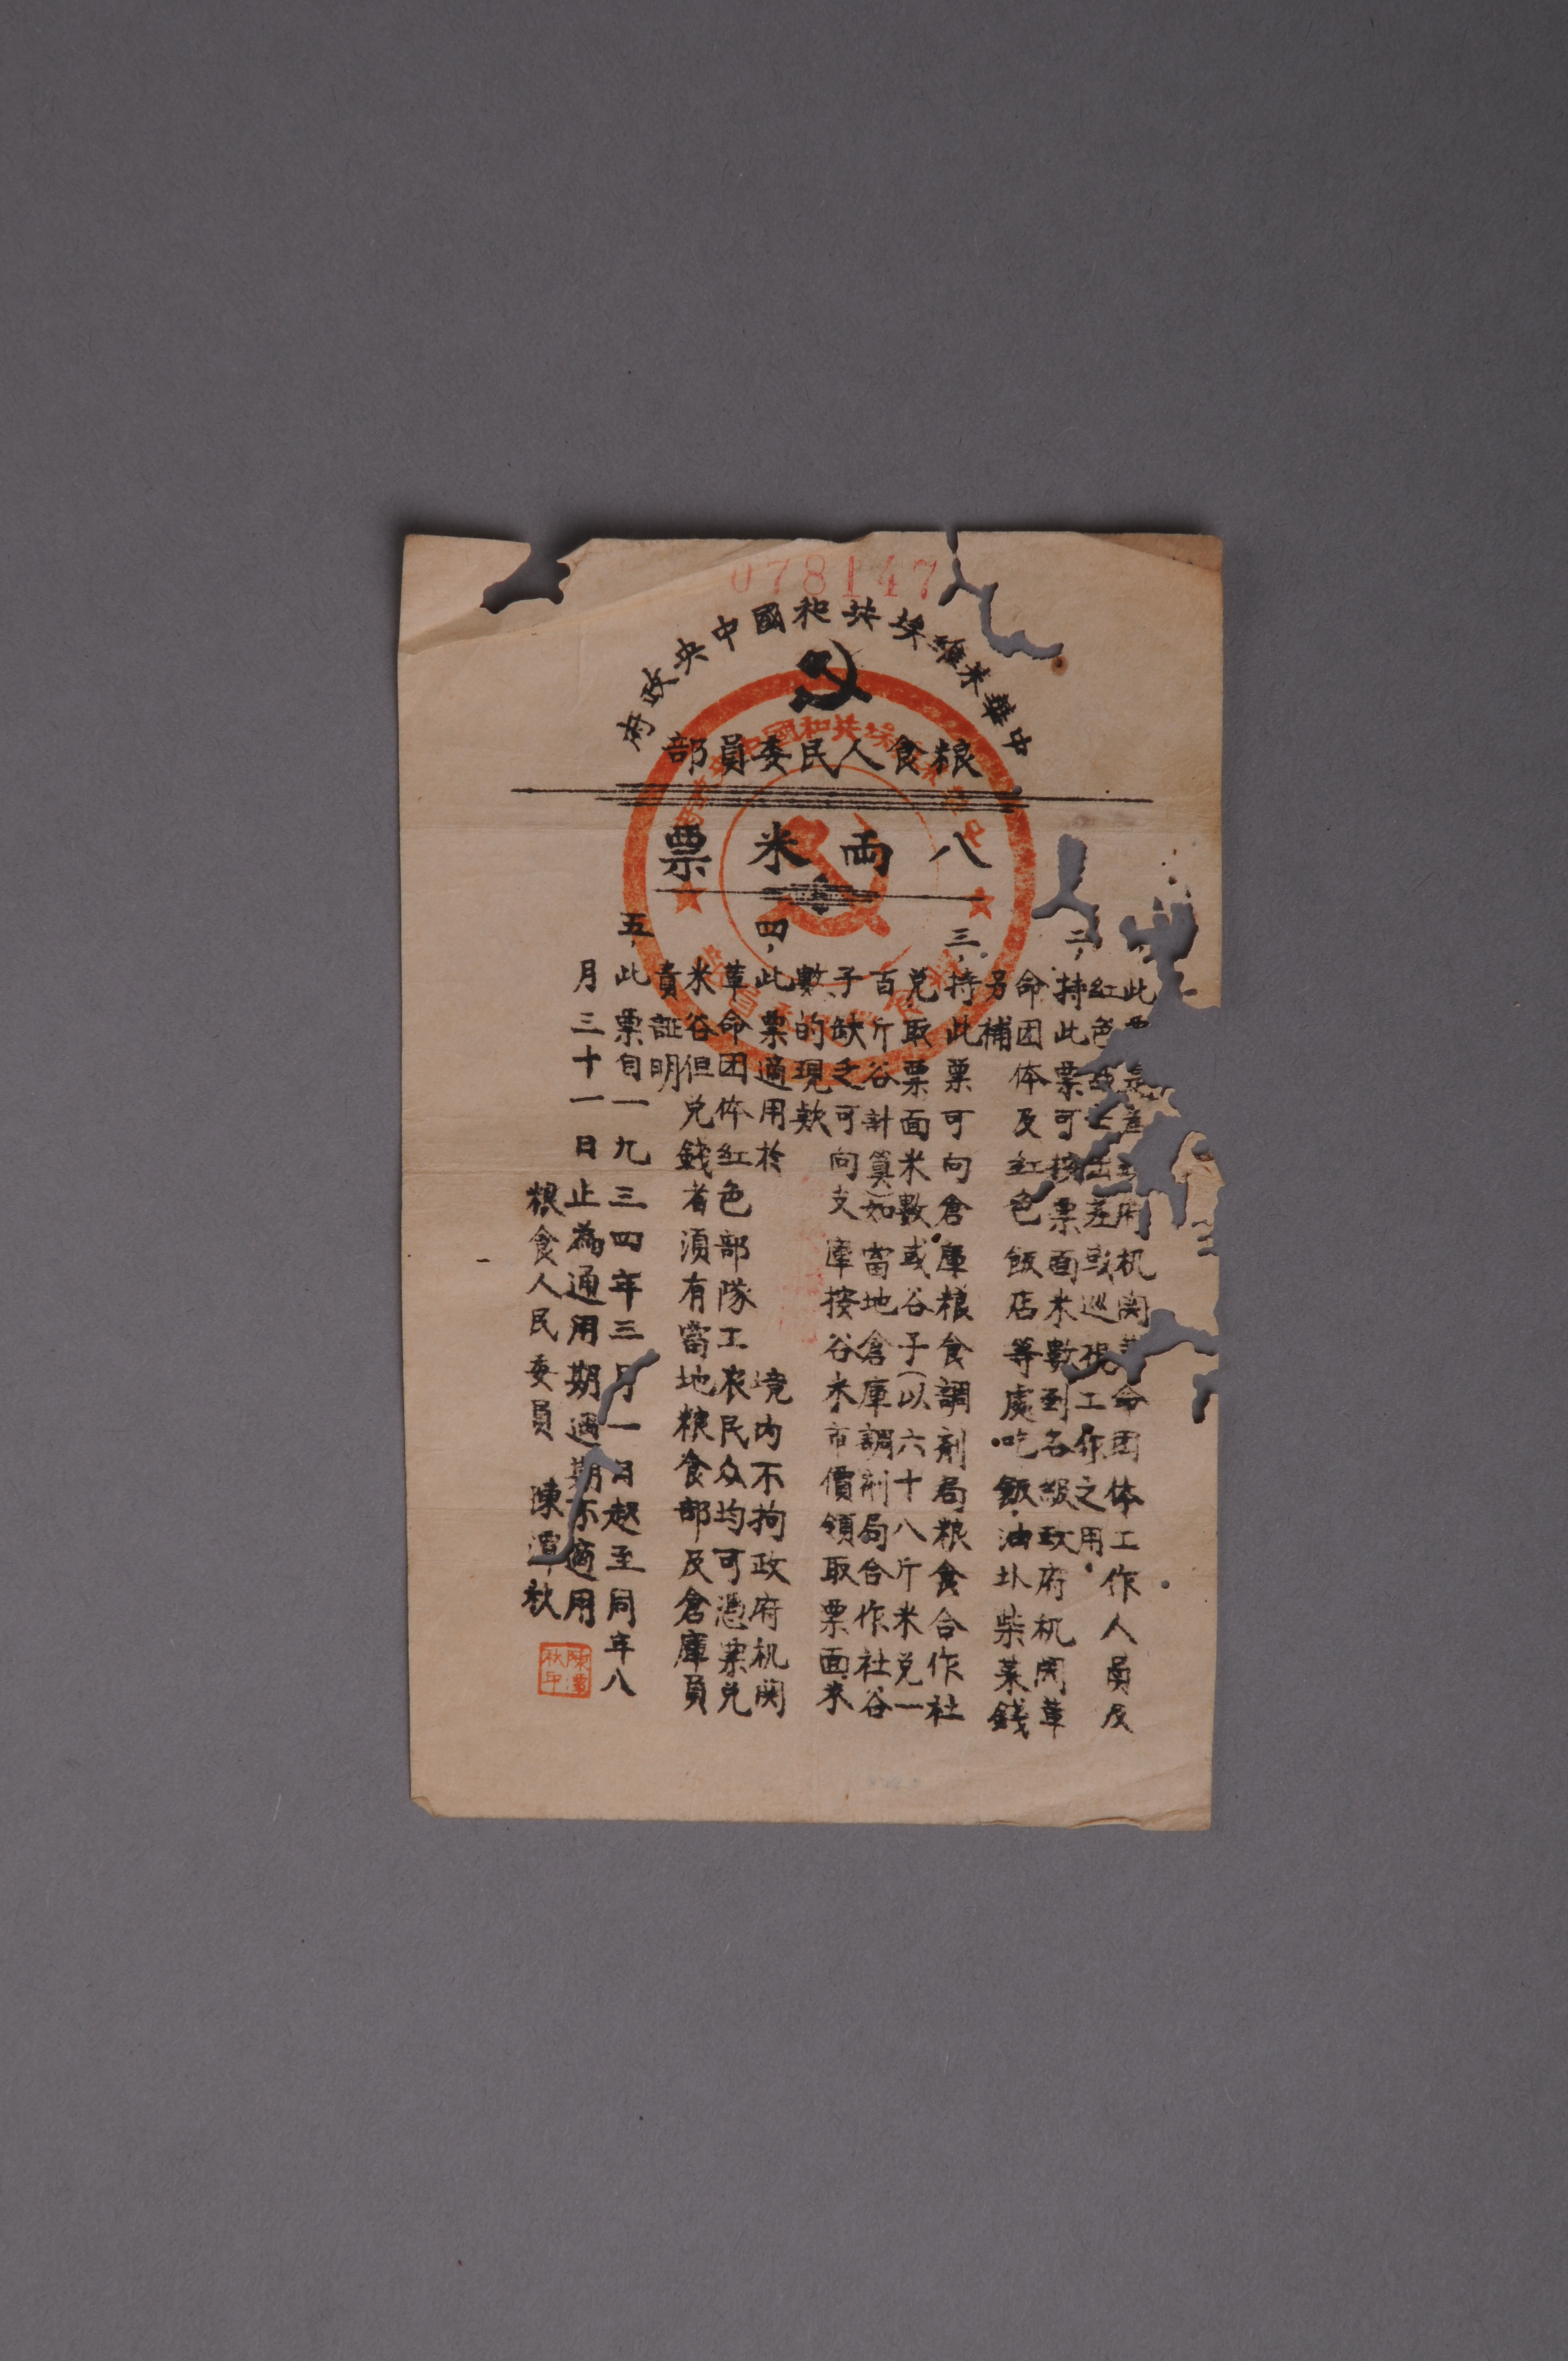 078147
中華蘇維埃共和國中央政府
粮食人民委員部
八両米票
此 府机関 命团体工作人員及
紅色 出差或巡視工作之用
二,持此票可按票面米數到各級政府机関革
命团体及紅色飯店等處吃飯,油盐柴菜錢
另補
三,持此票可向倉庫粮食調剂局粮食合作社
兑取票面米數或谷子(以六十八斤米兑一
百斤谷計算)如當地倉庫調剂局合作社谷
子缺乏可向支庫按谷米市價領取票面米
數的現欵
四,此票適用於 境内不拘政府机関
革命团体紅色部隊工农民众均可憑票兑
米谷但兑錢者須有當地粮食部及倉庫負
責証明
五,此票自一九三四年三月一日起至同年八
月三十一日止為通用期過期不適用
粮食人民委員 陳潭秋
陳潭秋印